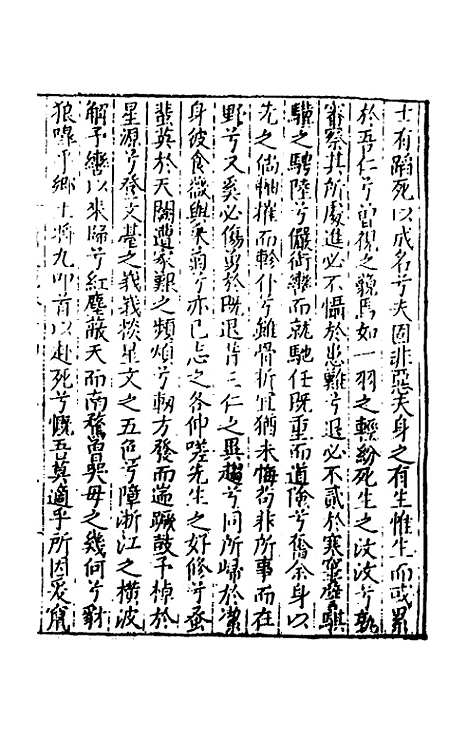 士有蹈死以成名兮夫固非惡夫身之有生惟生而或累
於吾仁兮曾視之藐焉如一羽之輕紛死生之汶汶兮孰
審察其所處進必不懾於患難兮退必不貳於寒窶騏
驥之騁陸兮儼銜轡而就馳任既重而道險兮奮余身以
先之倘軸摧而軫仆兮雖骨折宜猶未悔苟非所事而在
野兮又奚必傷勇於既退昔三仁之異趨兮同所歸於潔
身彼食薇與采菊兮亦已志之各伸嗟先生之好修兮蚤
蜚英於天闕遭家艱之頻煩兮軔方發而遄蹶鼓予棹於
星源兮登文臺之峨峨掞星文之五色兮障浙江之橫波
解予轡以來歸兮紅塵蔽天而南騖曾與毋之幾何兮豺
狼嘷乎鄉土將九叩首以赴死兮慨吾莫適乎所因爰竄